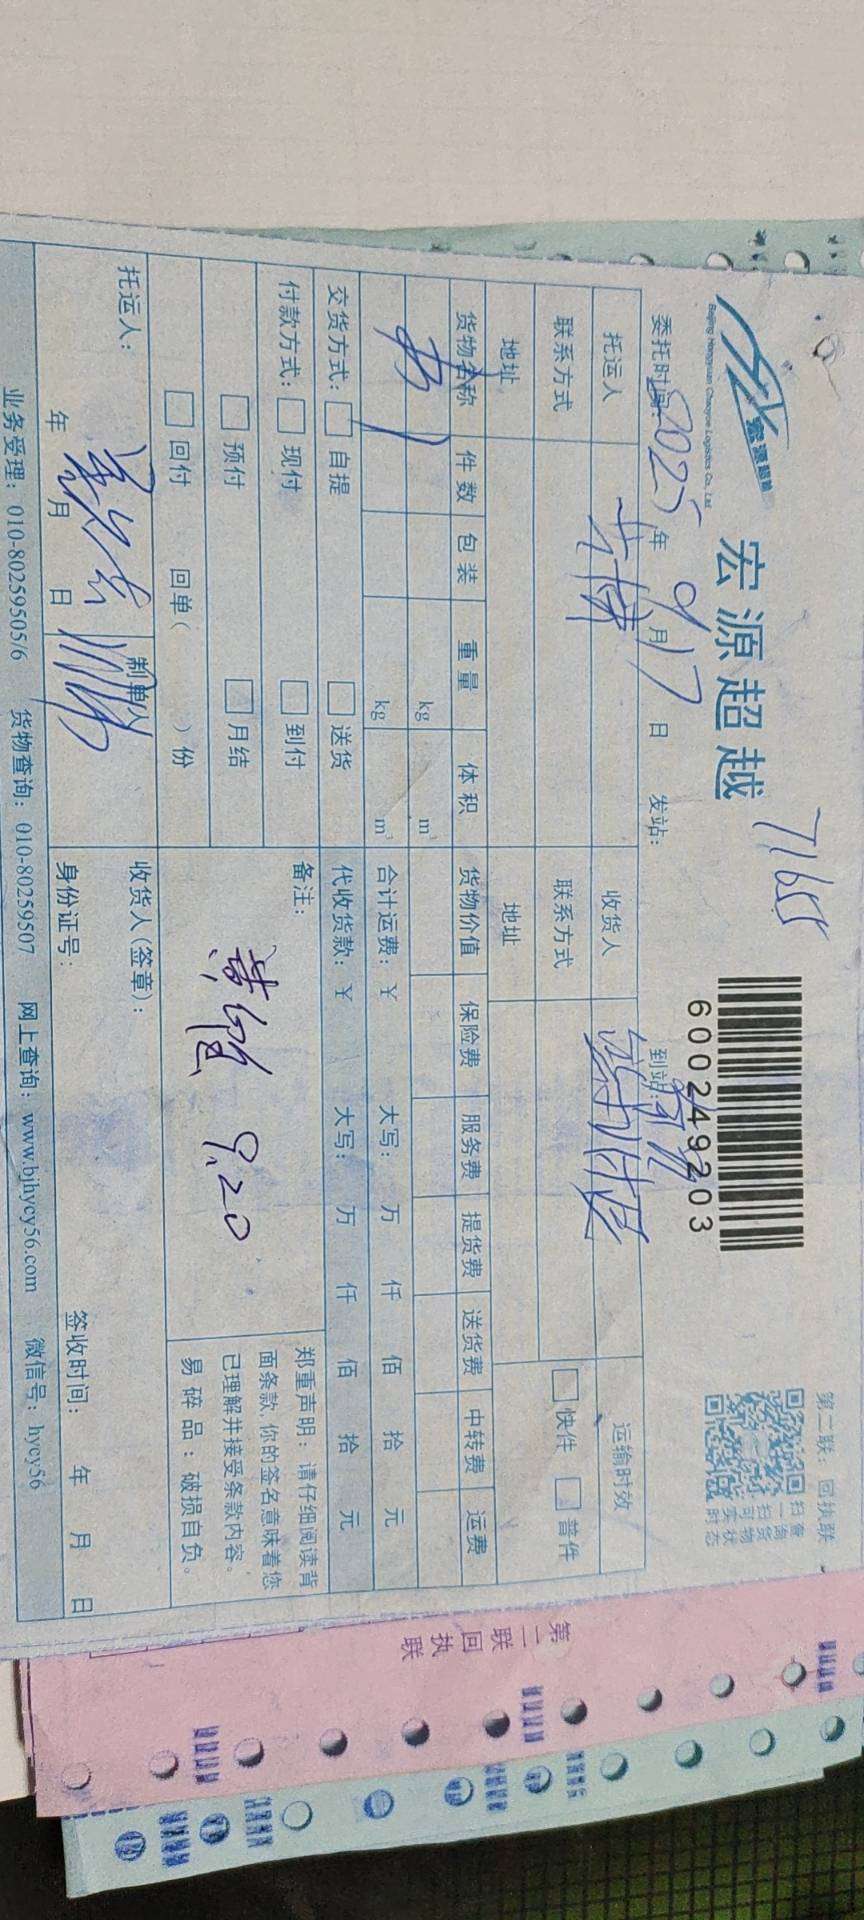 宏源超越
Beijing Hongyuan Chaoyue Logistics Co., Ltd.
宏源超越
71655
600249203
第二联：回执联
扫一扫可实时
查询货物状态
委托时间：2025年9月17日 发站： 到站：
托运人 收货人 运输时效
联系方式 联系方式 快件 普件
地址 地址
货物名称 件数 包装 重量 体积 货物价值 保险费 服务费 提货费 送货费 中转费 运费
kg m³
书 1 kg m³ 合计运费：￥ 大写： 万 仟 佰 拾 元
交货方式： 自提 送货 代收货款：￥ 大写： 万 仟 佰 拾 元
付款方式： 现付 到付 备注：
预付 月结
回付 回单（ ）份
9.20
郑重声明：请仔细阅读背
面条款，你的签名意味着您
已理解并接受条款内容。
易碎品：破损自负。
托运人： 制单人 收货人(签章)：
年 月 日 身份证号： 签收时间： 年 月 日
业务受理：010-80259505/6 货物查询：010-80259507 网上查询：www.bjhycy56.com 微信号：hycy56
第二联回执联